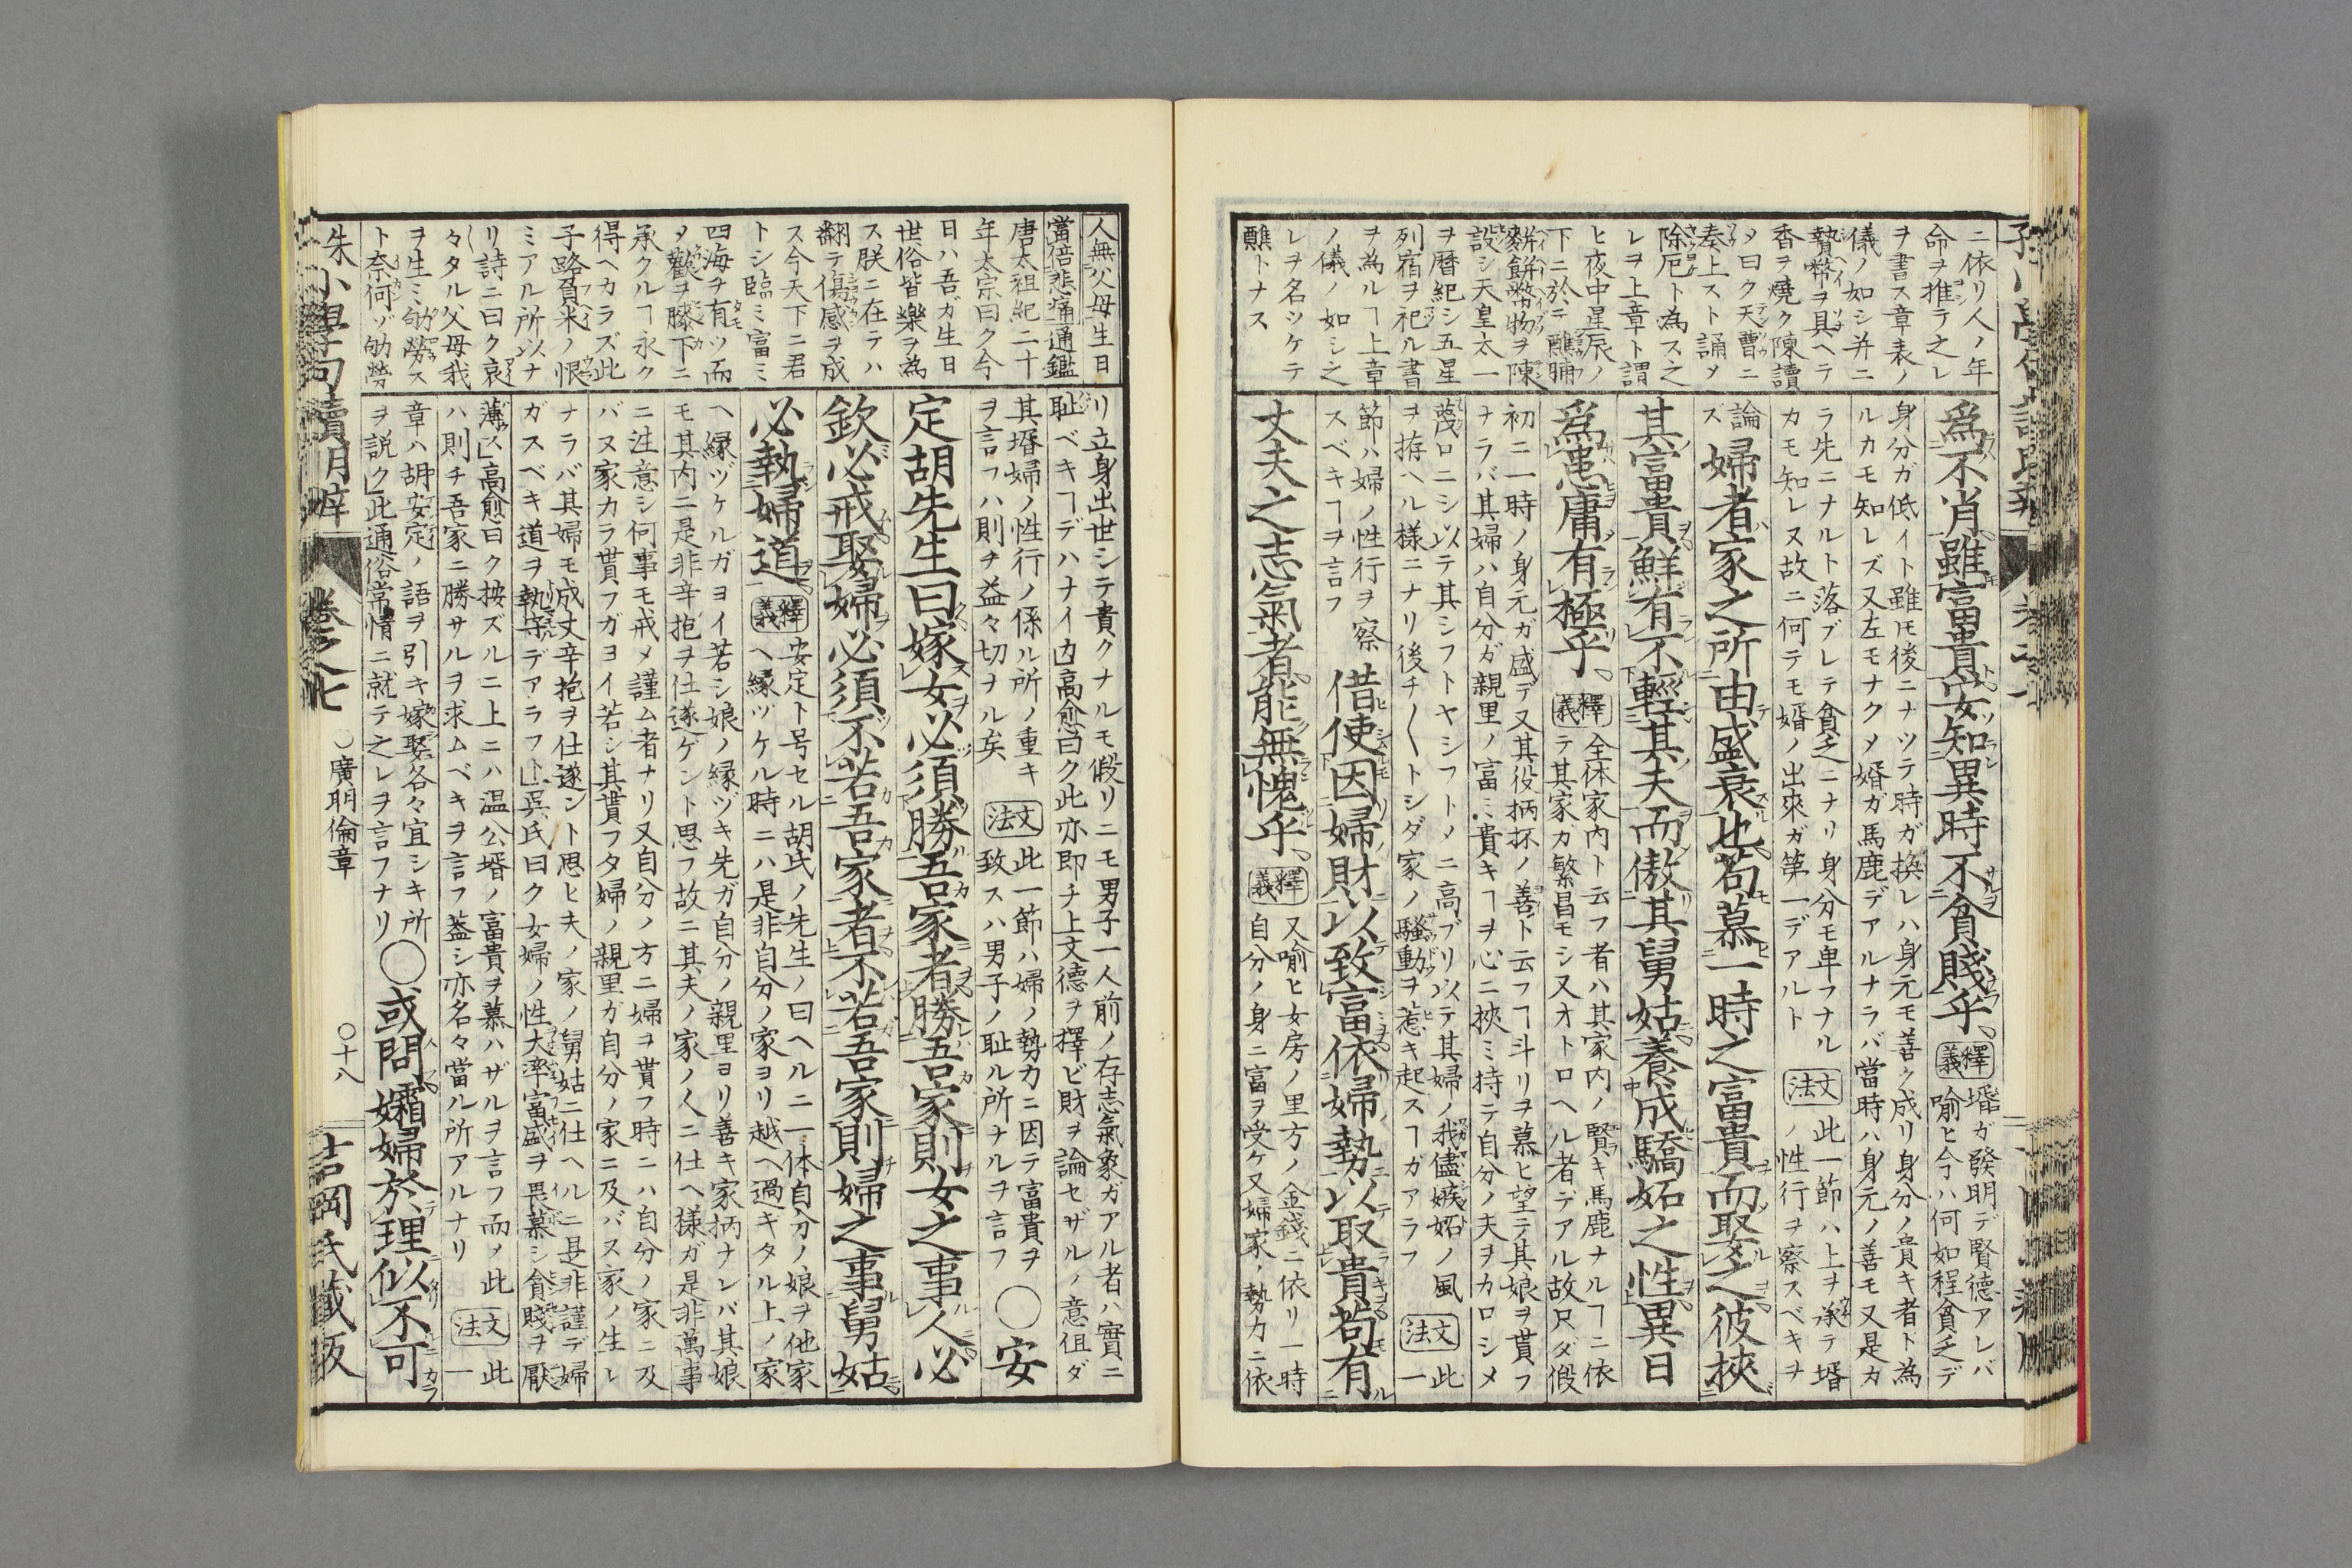 ニ依リ人ノ年
命ヲ推テ之レ
ヲ書ス章表ノ
儀ノ如シ并ニ
贄幣ヲ具ヘテ
香ヲ燒ク陳讀
メ曰ク天曹ニ
奏上スト誦メ
除厄ト為ス之
レヲ上章ト謂
ヒ夜中星辰ノ
下ニ於テ醮脯
麩餅幣物ヲ陳
設シ天皇太一
ヲ曆紀シ五星
列宿ヲ祀ル書
ヲ為ルヿ上章
ノ儀ノ如シ之
レヲ名ツケテ
醮トナス
爲不肖雖富貴安知異時不貧賤乎
釋義
壻ガ發明デ賢德アレバ
喩ヒ今ハ何如程貧乏デ
身分ガ低イト雖モ後ニナツテ時ガ換レハ身元モ善ク成リ身分ノ貴キ者ト為
ルカモ知レズ又左モナクメ婿ガ馬鹿デアルナラバ當時ハ身元ノ善モ又是カ
ラ先ニナルト落ブレテ貧乏ニナリ身分モ卑フナル
カモ知レヌ故ニ何テモ婿ノ出來ガ第一デアルト
文法
此一節ハ上ヲ承テ壻
ノ性行ヲ察スベキヲ
論ズ
婦者家之所由盛衰也苟慕一時之富貴而娶之彼挾
其富貴鮮有不輕其夫而傲其舅姑養成驕妬之性異日
爲患庸有極乎
釋義
全体家内ト云フ者ハ其家内ノ賢キ馬鹿ナルヿニ依
テ其家ガ繁昌モシ又オトロヘル者デアル故只ダ假
初ニ一時ノ身元ガ盛デ又其役柄抔ノ善ト云フヿ斗リヲ慕ヒ望テ其娘ヲ貰フ
ナラバ其婦ハ自分ガ親里ノ富ミ貴キヿヲ心ニ挾ミ持テ自分ノ夫ヲカロシメ
蔑ロニシ以テ其シフトヤシフトメニ高ブリ以テ其婦ノ我儘嫉妬ノ風
ヲ拵ヘル様ニナリ後チ〱トシダ家ノ騒動ヲ惹キ起スヿガアラフ
文法
此一
節ハ婦ノ性行ヲ察
スベキヿヲ言フ
借使因婦財以致富依婦勢以取貴苟有
丈夫之志氣者能無愧乎
釋義
又喩ヒ女房ノ里方ノ金錢ニ依リ一時
自分ノ身ニ富ヲ受ケ又婦家ノ勢力ニ依
人無父母生日
當倍悲痛通鑑
唐太祖紀二十
年太宗曰ク今
日ハ吾ガ生日
世俗皆樂ヲ為
ス朕ニ在テハ
翻テ傷感ヲ成
ス今天下ニ君
トシ臨ミ富ミ
四海ヲ有ツ而
メ歡ヲ膝下ニ
承クルヿ永ク
得ヘカラズ此
子路負米ノ恨
ミアル所以ナ
リ詩ニ曰ク哀
々タル父母我
ヲ生ミ劬勞ス
ト奈何ゾ劬勞
リ立身出世シテ貴クナルモ假リニモ男子一人前ノ存志氣象ガアル者ハ實ニ
耻ベキヿデハナイカ高愈曰ク此亦即チ上文德ヲ擇ビ財ヲ論セザルノ意但ダ
其壻婦ノ性行ノ係ル所ノ重キ
ヲ言フハ則チ益々切ヲル矣
文法
此一節ハ婦ノ勢力ニ因テ富貴ヲ
致スハ男子ノ耻ル所ナルヲ言フ
○安
定胡先生曰嫁女必須勝吾家者勝吾家則女之事人必
欽必戒娶婦必須不若吾家者不若吾家則婦之事舅姑
必執婦道
釋義
安定ト号セル胡氏ノ先生ノ曰ヘルニ一体自分ノ娘ヲ他家
ヘ縁ヅケル時ニハ是非自分ノ家ヨリ越ヘ過ギタル上ノ家
ヘ縁ヅケルガヨイ若シ娘ノ縁ヅキ先ガ自分ノ親里ヨリ善キ家柄ナレバ其娘
モ其内ニ是非辛抱ヲ仕遂ゲント思フ故ニ其夫ノ家ノ人ニ仕ヘ様ガ是非萬事
ニ注意シ何事モ戒メ謹ム者ナリ又自分ノ方ニ婦ヲ貰フ時ニハ自分ノ家ニ及
バヌ家カラ貰フガヨイ若シ其貰フタ婦ノ親里ガ自分ノ家ニ及バヌ家ノ生レ
ナラバ其婦モ成丈辛抱ヲ仕遂ント思ヒ夫ノ家ノ舅姑ニ仕ヘルニ是非謹デ婦
ガスベキ道ヲ執守デアラフト吳氏曰ク女婦ノ性大率富盛ヲ畏慕シ貧賤ヲ厭
薄ス高愈曰ク按ズルニ上ニハ温公壻ノ富貴ヲ慕ハザルヲ言フ而ノ此
ハ則チ吾家ニ勝サルヲ求ムベキヲ言フ蓋シ亦名々當ル所アルナリ
文法
此一
章ハ胡安定ノ語ヲ引キ嫁娶各々宜シキ所
ヲ説ク此通俗常情ニ就テ之レヲ言フナリ
○或問孀婦於理似不可
朱小學句讀明辨
卷之七
○廣明倫章
○十八
吉岡氏藏板